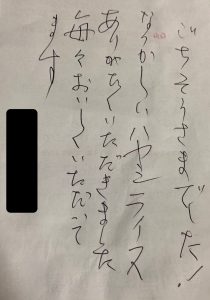 ごちそうさまでした!
なつかしいハヤシライス
ありがたくいただきました
毎々おいしくいただいて
ます